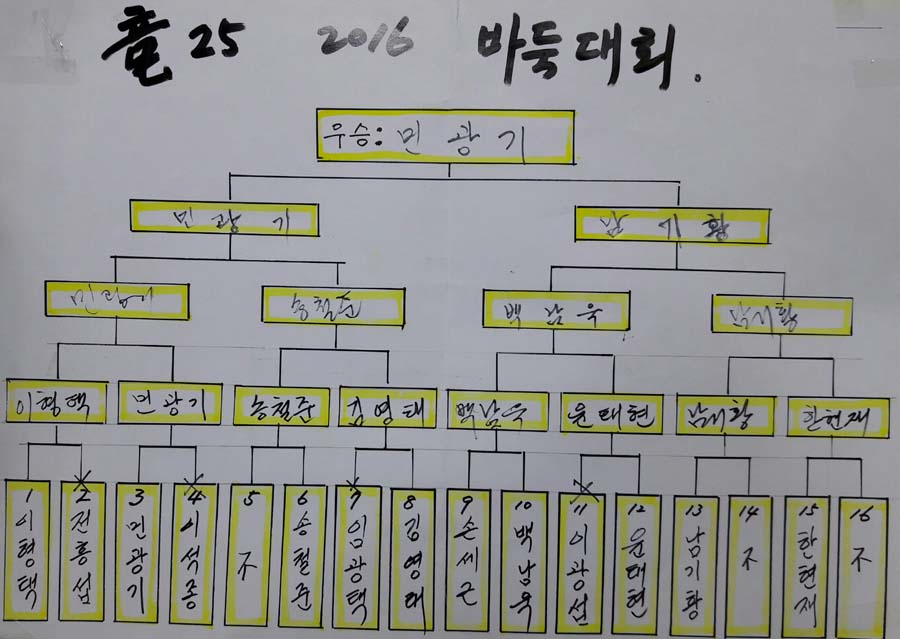 竜25 2016 바둑대회.
우승: 민광기
민광기 남기황
민광기 송철준 백남욱 남기황
이형택 민광기 송철준 김영태 백남욱 윤태현 남기황 한현재
1 이형택
2 전홍섭
3 민광기
4 이석종
5 不
6 송철준
7 임광택
8 김영태
9 손세근
10 백남욱
11 이광선
12 윤태현
13 남기황
14 不
15 한현재
16 不